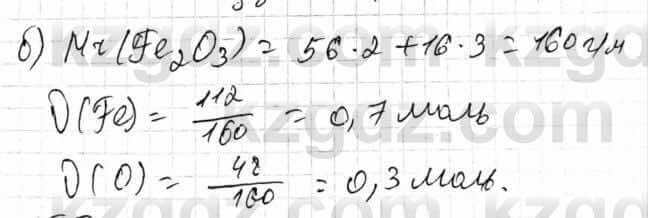 б) Mr(Fe₂O₃) = 56·2 + 16·3 = 160 г/м
D(Fe) = 112/160 = 0,7 моль
D(O) = 48/160 = 0,3 моль.